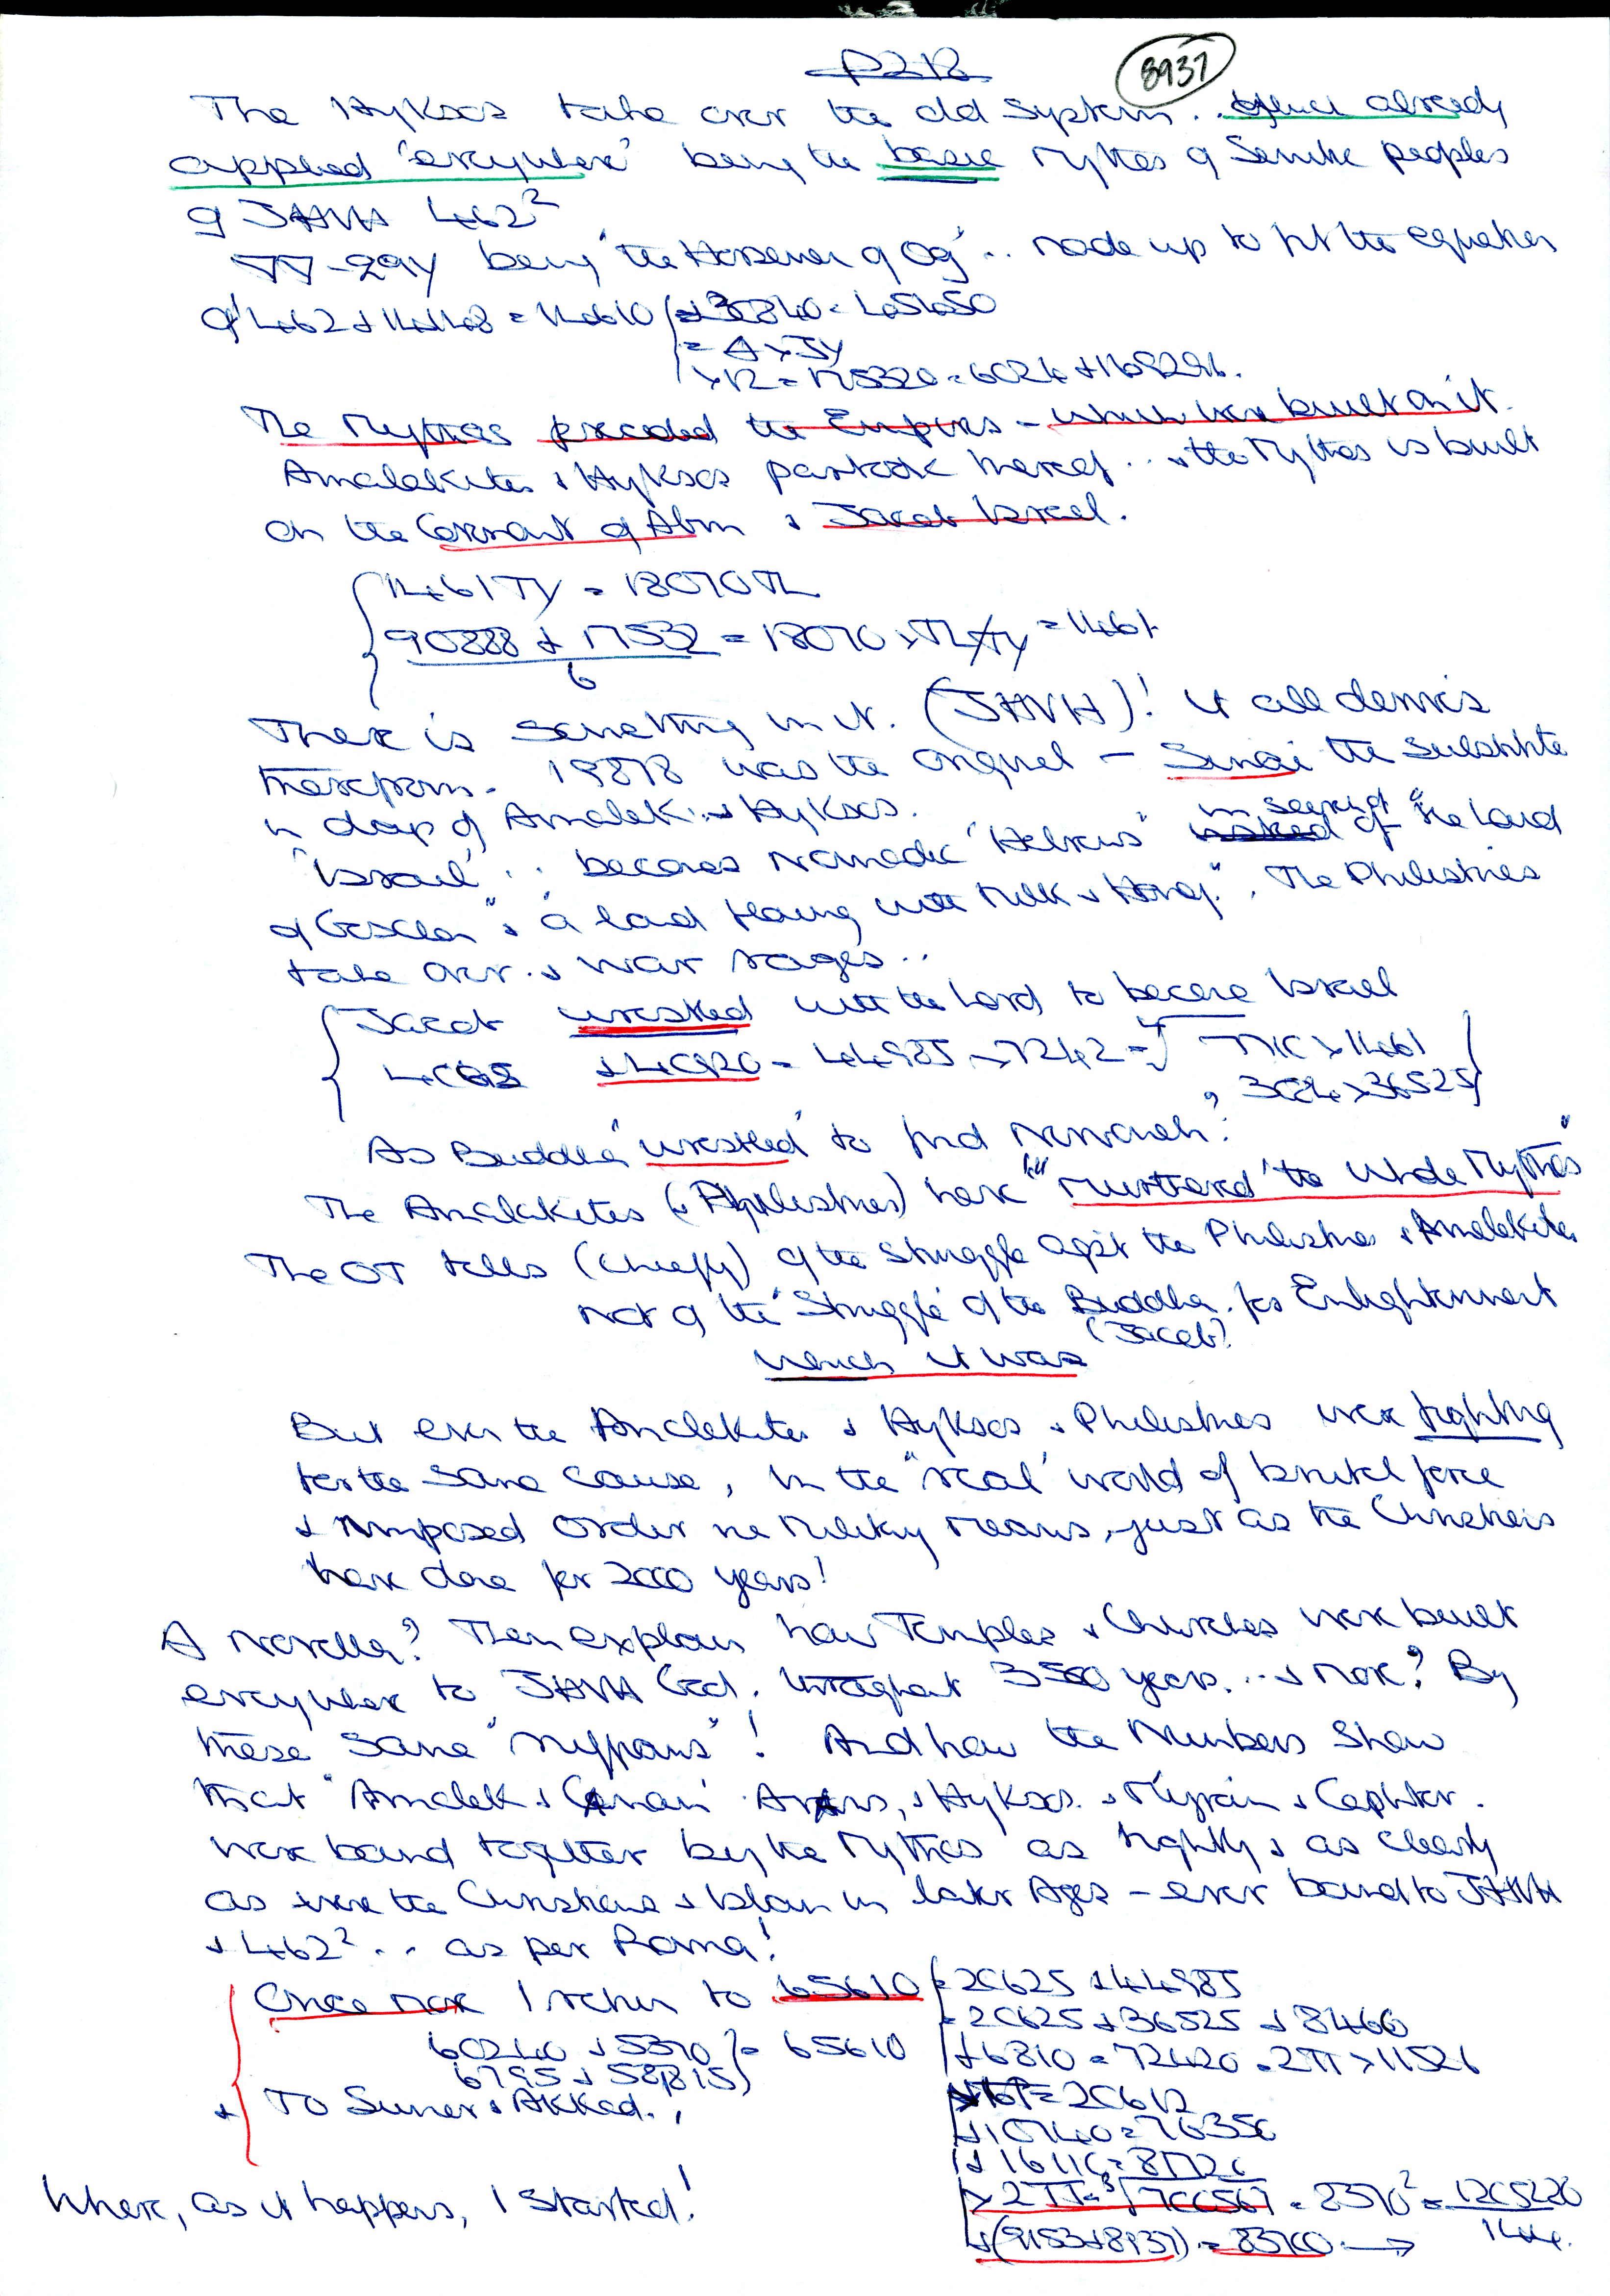 P212
8937
The Hyksos take over the old System.. already
applied 'everywhere' being the base Mythos of Semitic peoples
of JAHVH 462²
being 'the Horsemen of Og'.. made up to fit the equation
of 462 + 14148 = 14610
= 4 × JY
× 12 = 175320 = 6024 + 169296.
The Mythos preceded the Empires - which were built on it.
Amalekites & Hyksos partook thereof... & the Mythos is built
on the Covenant of Abm & Jacob Israel.
1461 TY = 18070 TL
90888 + 17532 = 18070 × TL/TY = 1461
6
There is something in it. (JAHVH)! It all derives
therefrom. 19878 was the original - Sinai the substitute
in chap of Amalek.. & Hyksos.
"Israel".. becomes Nomadic "Hebrews" in search of "the Land
of Goschen" & "a land flowing with Milk & Honey". The Philistines
take over. & war rages..
Jacob wrestled with the Lord to become Israel
= 44985 × 7242 = × 1461
3084 × 36525
As Buddha 'wrestled' to find Nirvanah?
The Amalekites (& Philistines) have "murthered" the whole Mythos"
The OT tells (chiefly) of the struggle agst the Philistines & Amalekites
not of the "Struggle" of the Buddha for Enlightenment
(Jacob?)
which it was
But even the Amalekites & Hyksos & Philistines were fighting
for the same cause, in the "real" world of brutal force
& imposed order via Military means, just as the Christians
have done for 2000 years!
A Novella? Then explain how Temples & Churches were built
everywhere to JAHVH God, throughout 3500 years... & more? By
these same "ruffians"! And how the Numbers show
that "Amalek & Canaan' & Hyksos. & & Caphtor.
were bound together by the Mythos as tightly & as clearly
as were the Christians & Islam in later Ages - ever bound to JAHVH
& 462².. as per Roma!
Once more I return to 65610 = 20625 + 44985
= 20625 + 36525 + 8460
60240 + 5370 = 65610
+ 6810 = 72420 = 2π × 11526
6795 + 58815
+ 10740 = 76350
+ To Sumer & Akkad.!
+ 16116 = 81726
× 2π = ³√700567 = 8370² = 1205220
144.
+ (9153 + 8937) = 83700 →
Where, as it happens, I started!